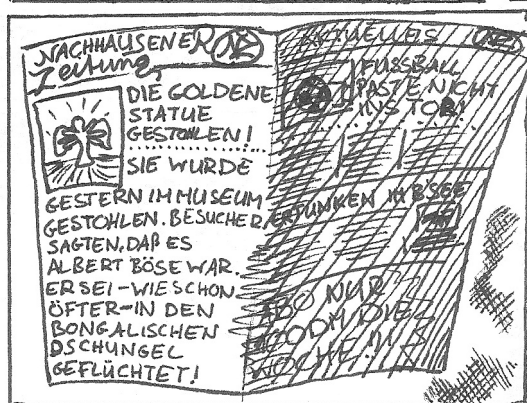 NACHHAUSENER NZ
Zeitung
DIE GOLDENE
STATUE
GESTOHLEN!
SIE WURDE
GESTERN IM MUSEUM
GESTOHLEN. BESUCHER
SAGTEN, DAß ES
ALBERT BÖSE WAR.
ER SEI-WIE SCHON
ÖFTER-IN DEN
BONGALISCHEN
DSCHUNGEL
GEFLÜCHTET!
AKTUELLES
FUSSBALL
PASTE NICHT
INS TOR!
ERTUNKEN IM B'SEE
ABO NUR
DIE
WOCHE!!